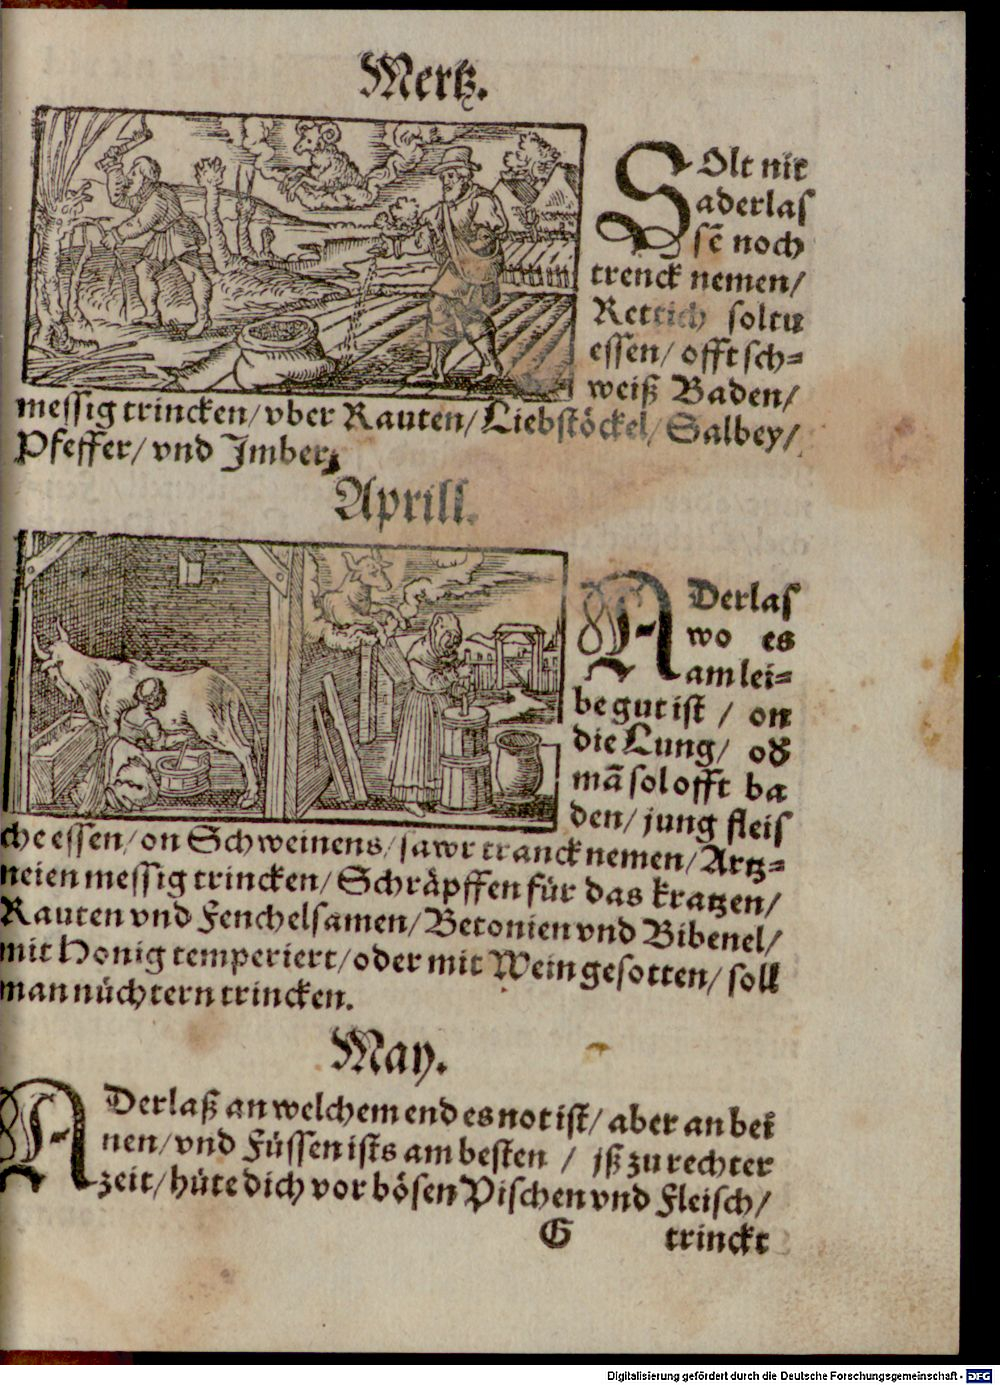 Mertz.
SOlt nit
aderlas
sẽ noch
trenck nemen/
Rettich soltu
essen/ offt sch=
weiß Baden/
messig trincken/ vber Rauten/ Liebstöckel/ Salbey/
Pfeffer/ vnd Imber.
Aprill.
ADerlas
wo es
am lei=
be gut ist / on
die Lung/ od
mã sol offt ba
den/ jung fleis
che essen/ on Schweinens/ sawr tranck nemen/ Artz=
neien messig trincken/ Schräpffen für das kratzen/
Rauten vnd Fenchelsamen/ Betonien vnd Bibenel/
mit Honig temperiert/ oder mit Wein gesotten/ soll
man nüchtern trincken.
May.
ADerlaß an welchem end es not ist/ aber an bei
nen/ vnd Füssen ists am besten / jß zu rechter
zeit/ hüte dich vor bösen Vischen vnd Fleisch/
G trinckt
Digitalisierung gefördert durch die Deutsche Forschungsgemeinschaft - DFG